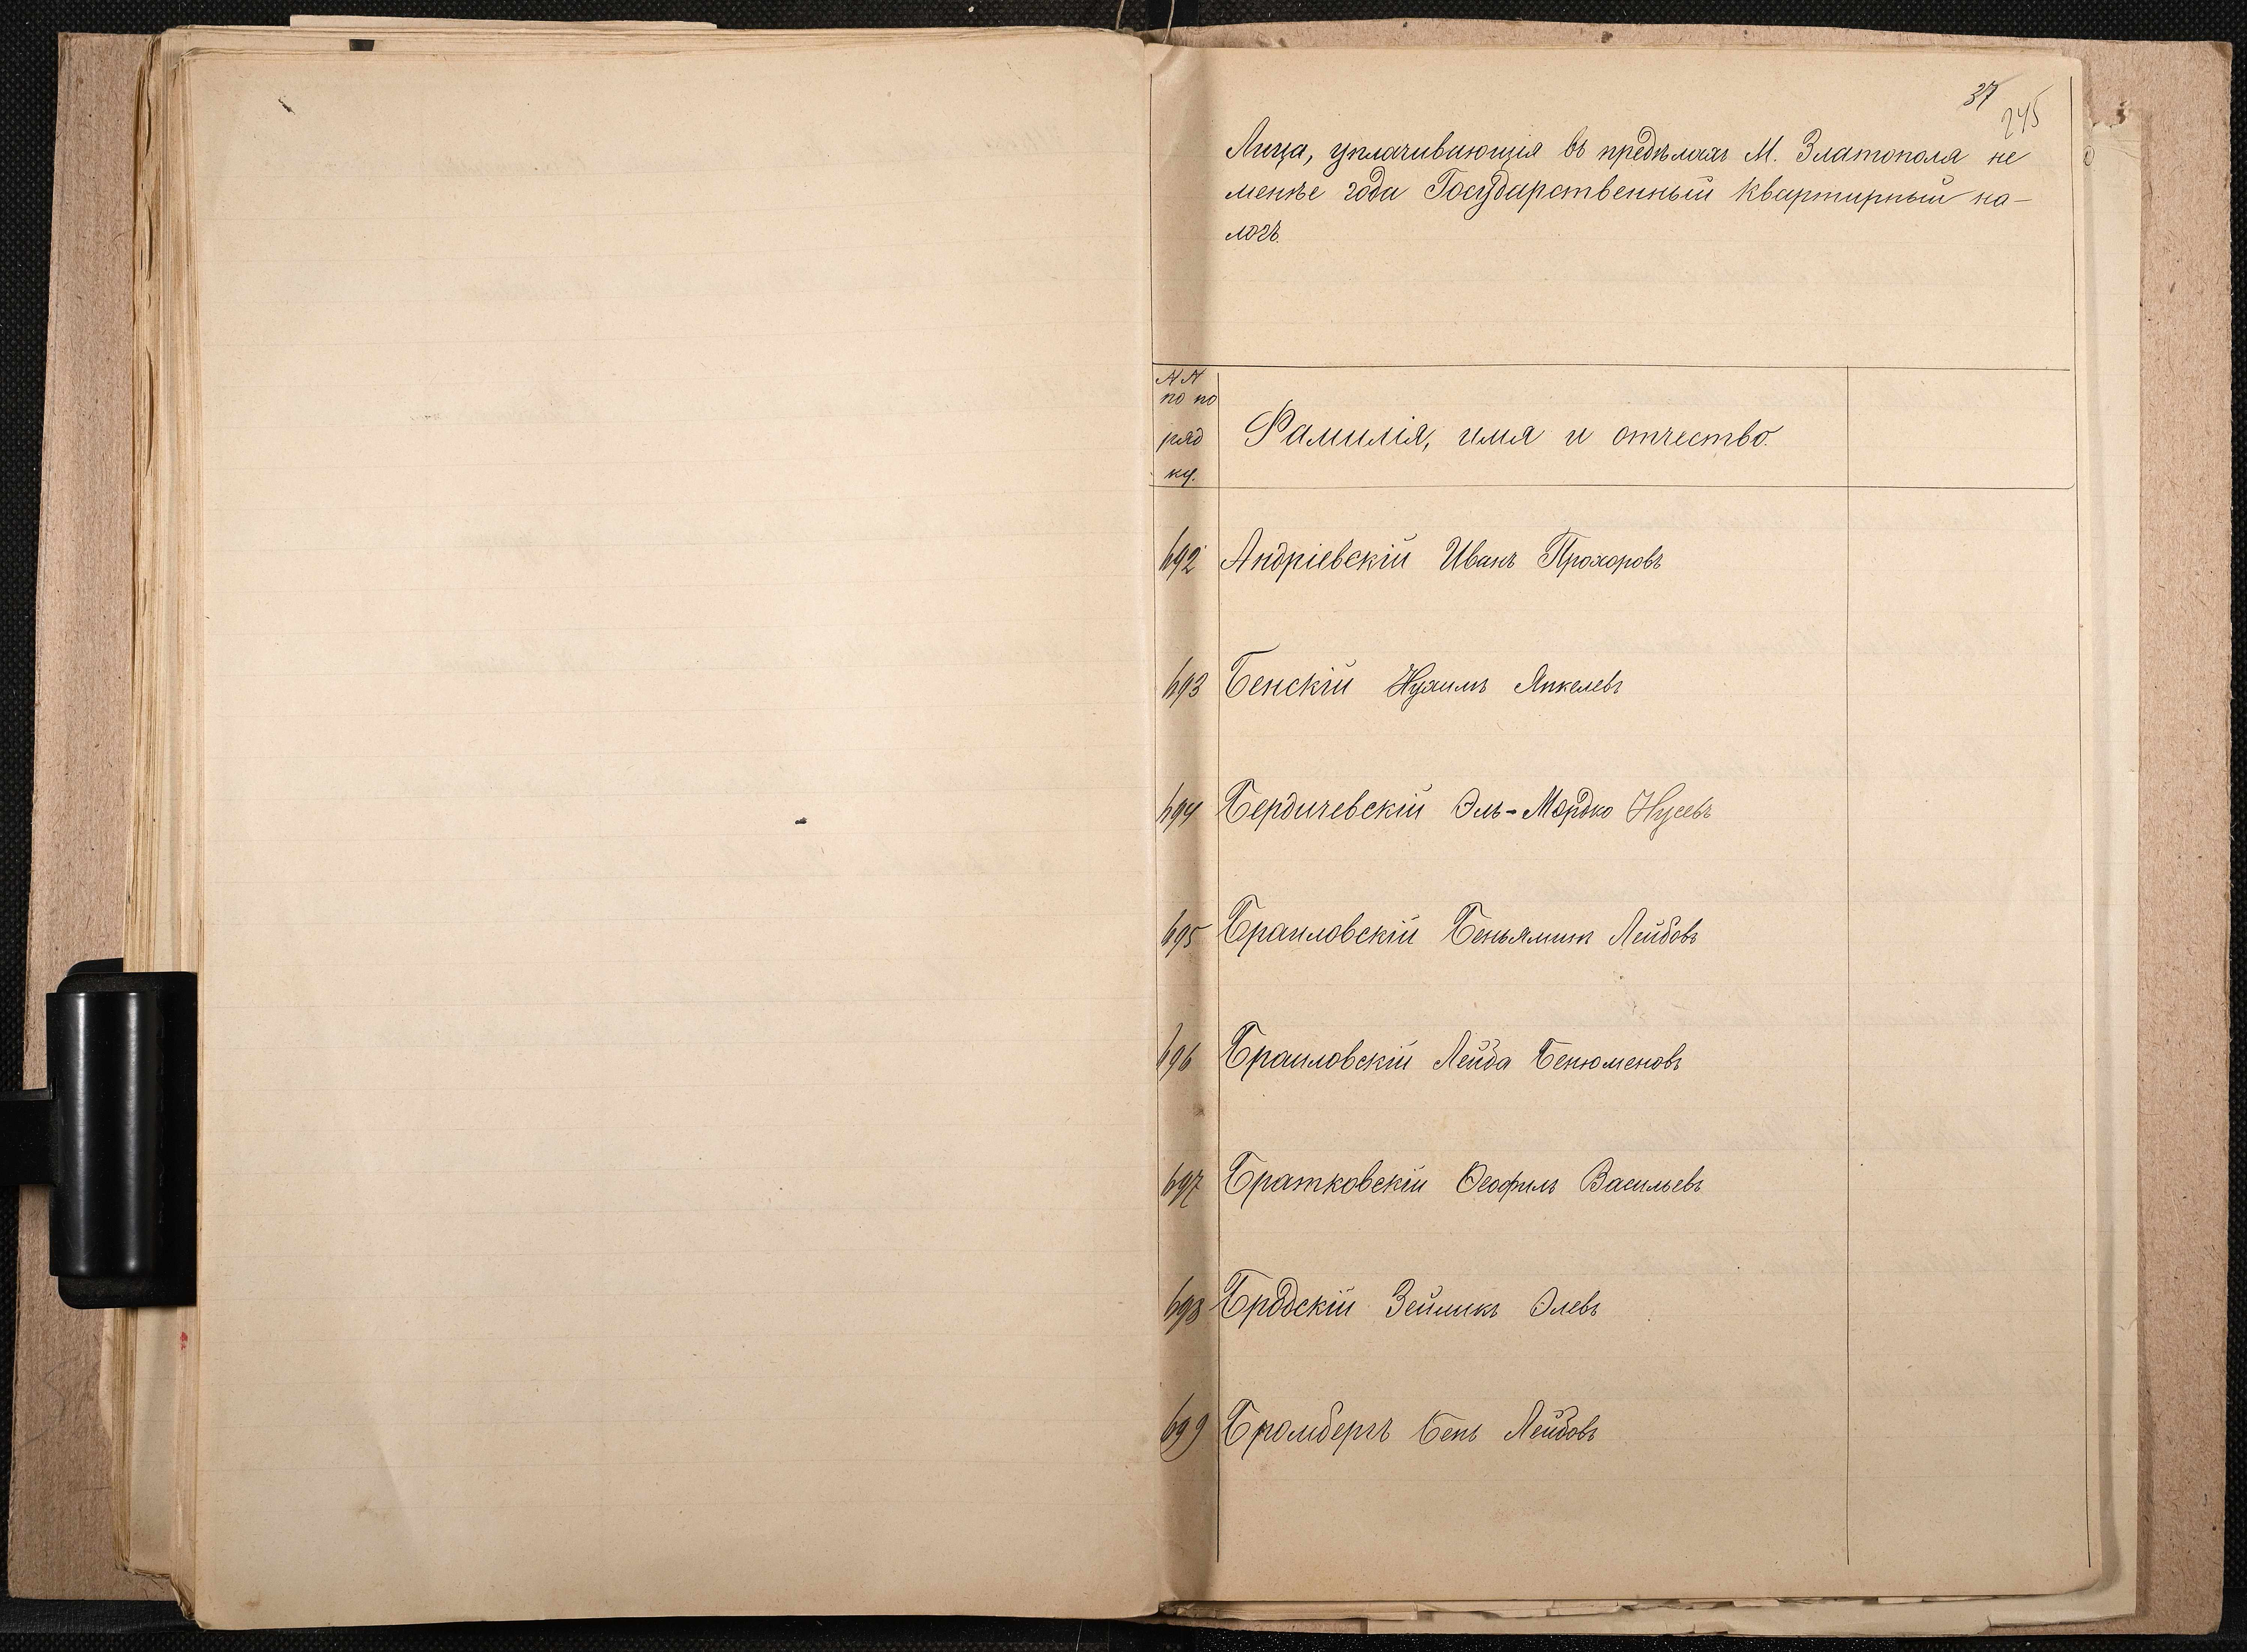 37
245
Лица, уплачивающія въ предѣлахъ М. Златополя не
менѣе года Государственный квартирный на-
логъ.
NN
по по
ряд
ку.
Фамилія, имя и отчество.
692 Андріевскій Иванъ Прохоровъ
693 Бенскій Нухимъ Янкелевъ
694 Бердичевскій Эль-Мордко Нусевъ
695 Браиловскій Беньяминъ Лейбовъ
696 Браиловскій Лейба Бенюменовъ
697 Братковскій Ѳеофилъ Васильевъ
698 Бродскій Зейликъ Элевъ
699 Бромбергъ Бень Лейбовъ